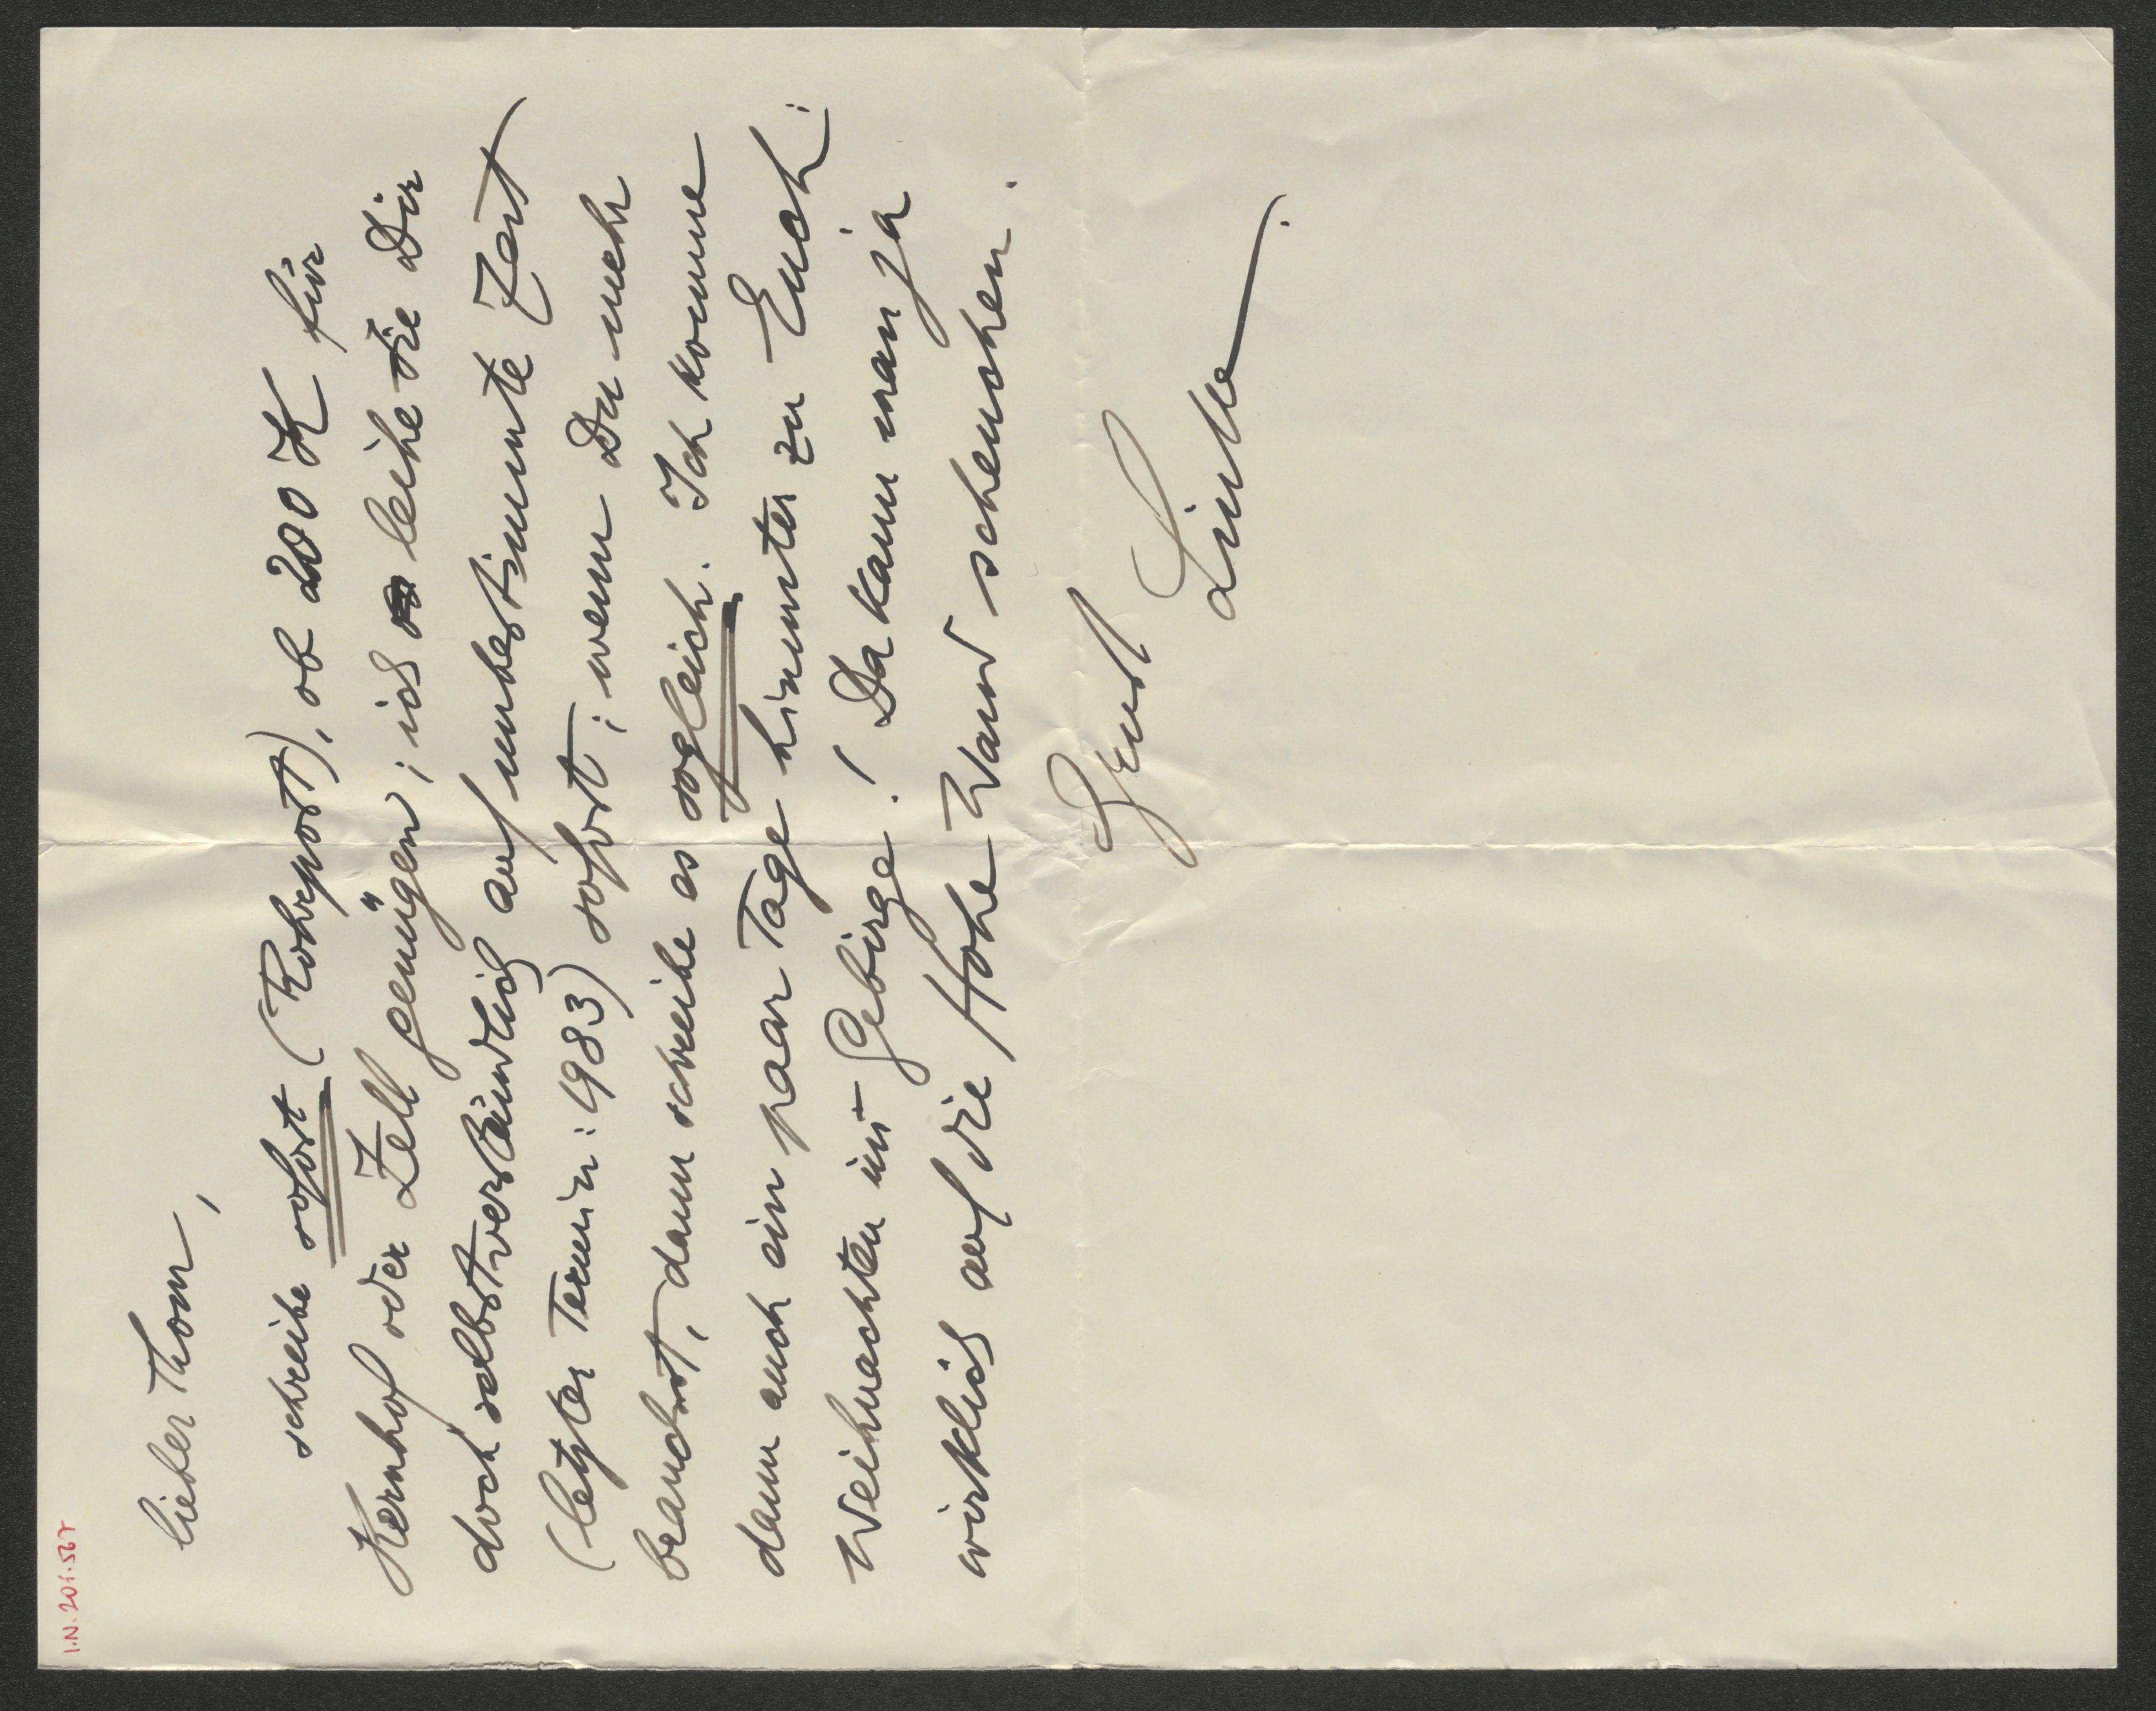 I.N. 201.567
lieber Thom,
schreibe sofort (Rohrpost), ob 200 K für
Kernhof oder Zell genügen; ich leihe sie Dir
doch selbstverständlich auf unbestimmte Zeit
(letzter Termin: 1983) sofort; wenn Du mehr
brauchst, dann schreibe es sogleich. Ich komme
dann auch ein paar Tage hinunter zu Euch:
Weihnachten im Gebirge! Da kann man ja
wirklich auf die Hohe Wand schauen.
Gruß
Linke